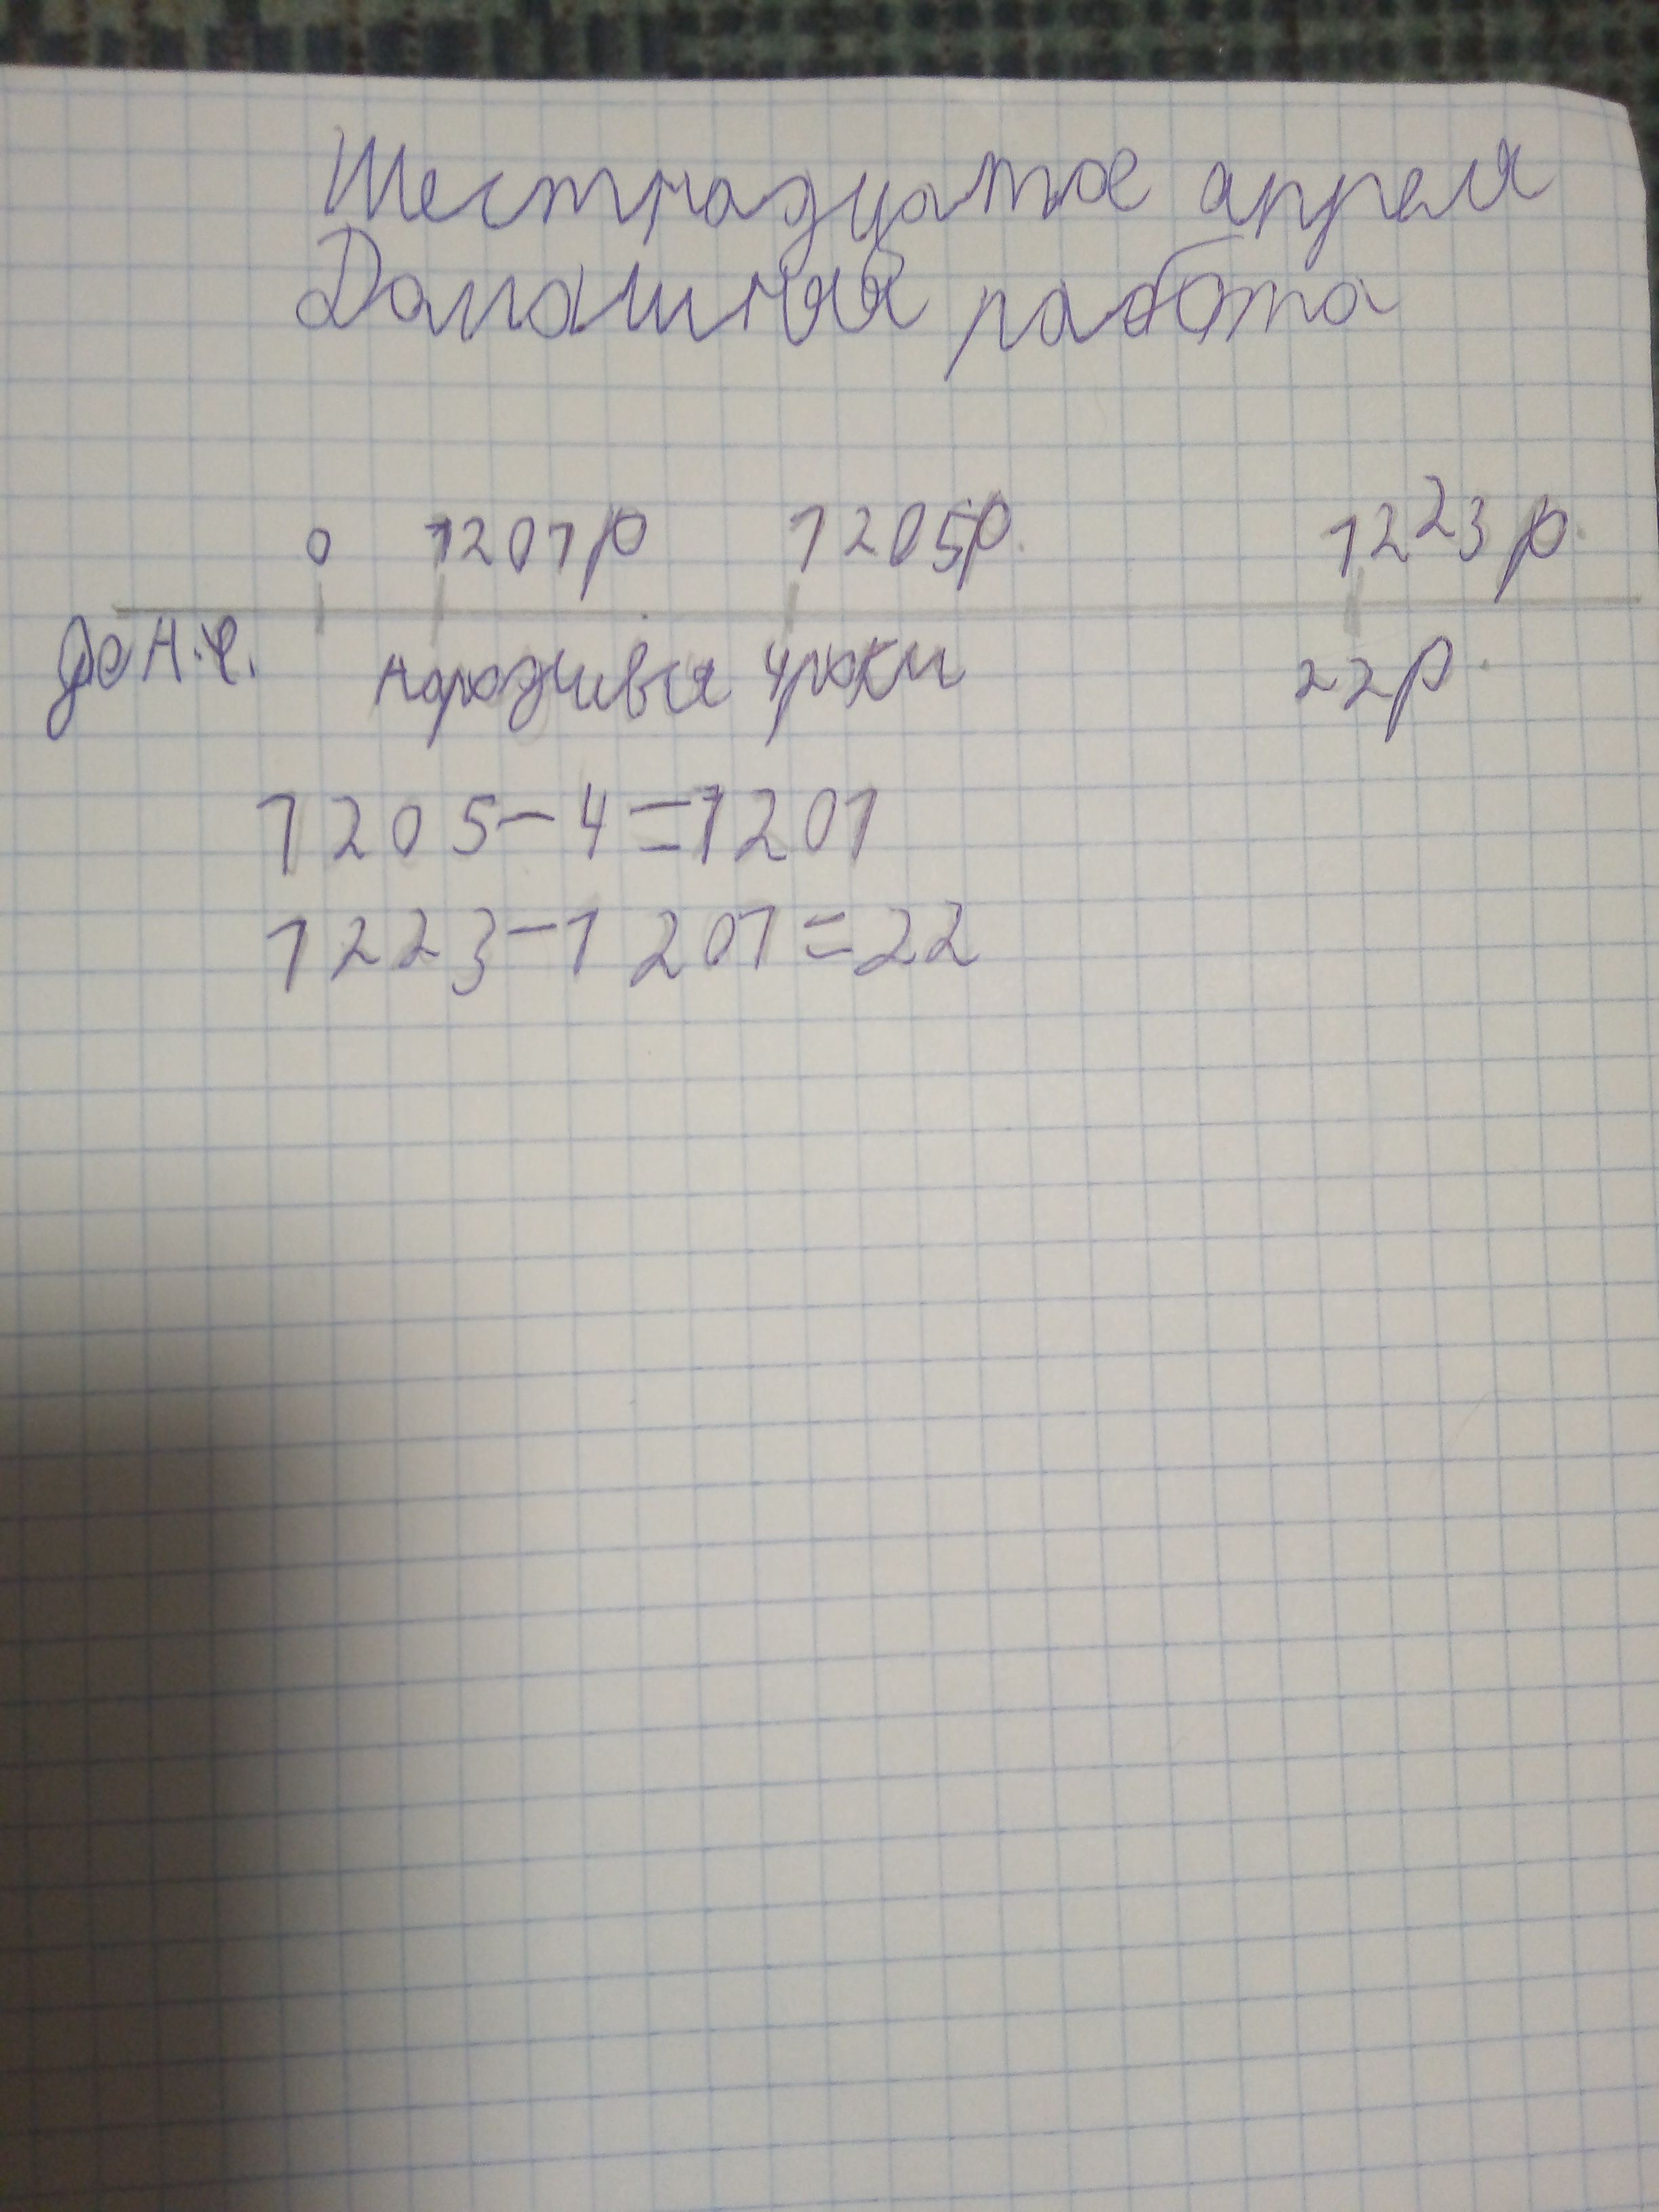 Шестнадцатое апреля
Домашняя работа
0 1201р 1205р. 1223р.
до н.е. народився 4роки 22р.
1205-4=1201
1223-1201=22